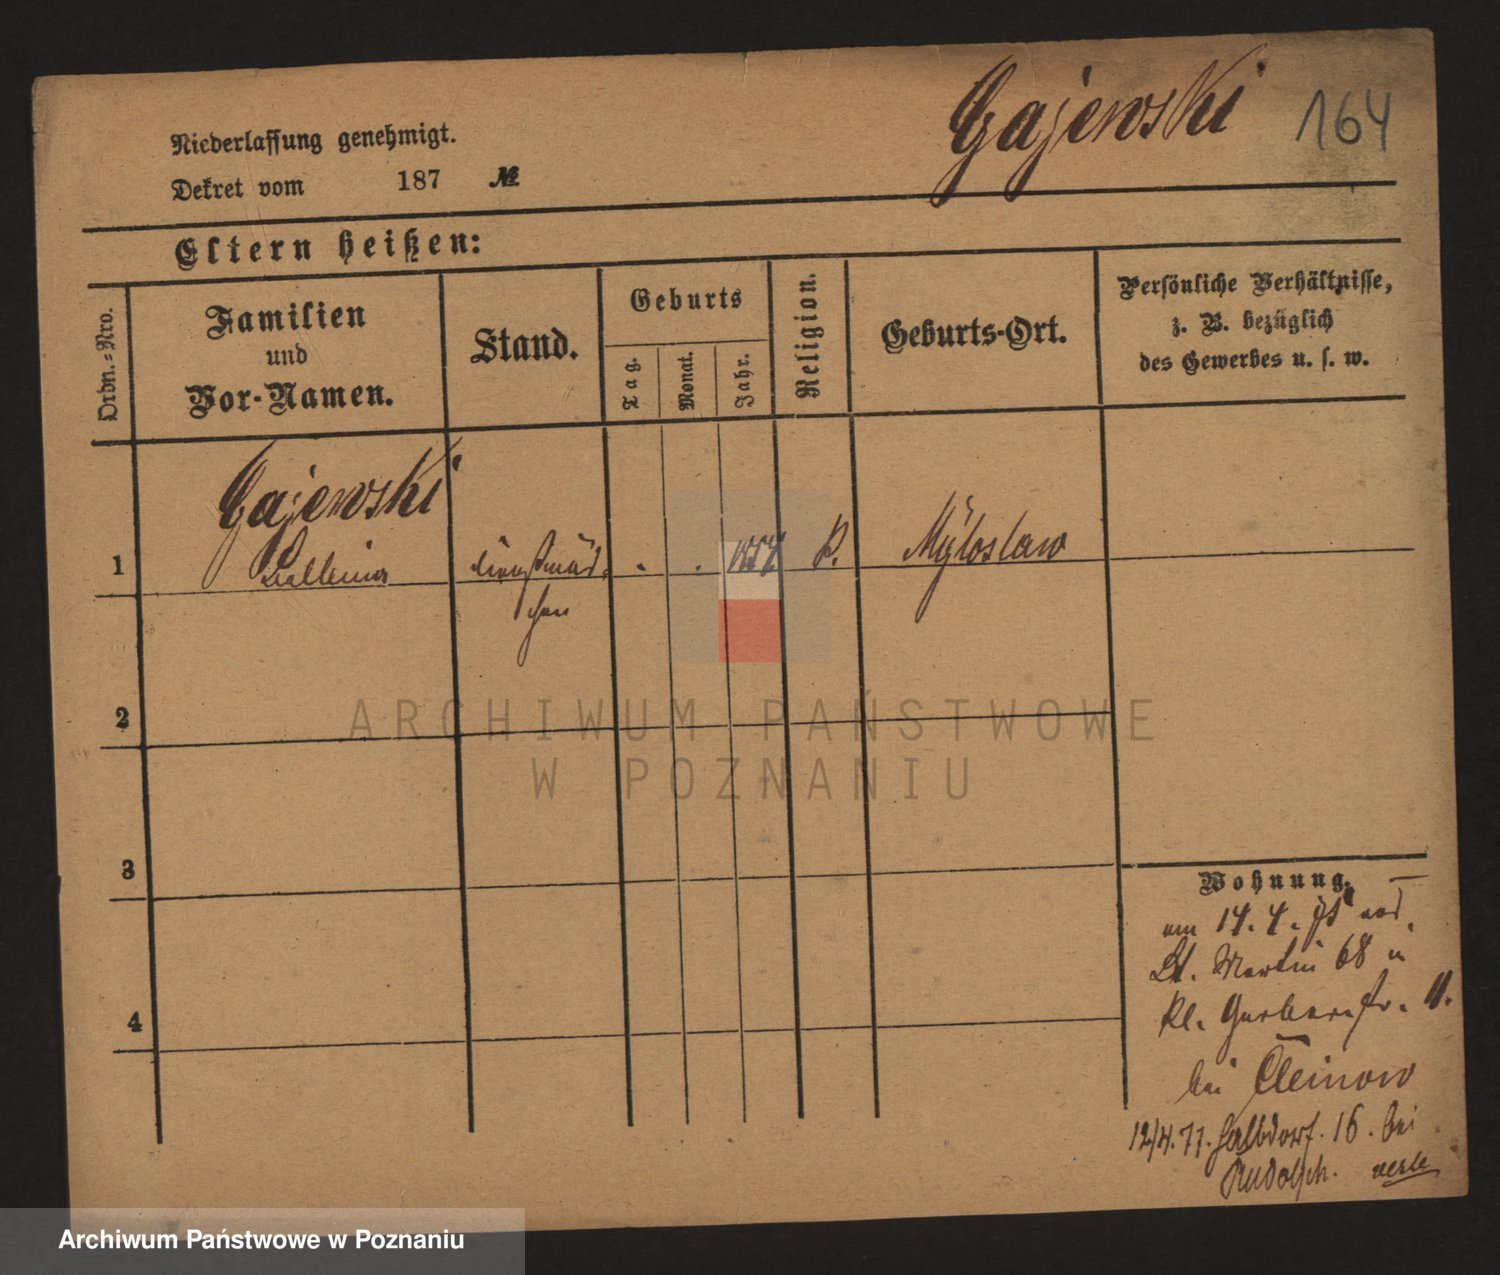 Gajewski 164
Niederlassung genehmigt.
Dekret vom 187 №
Eltern heißen:
Ordn.=Nro.
Familien
und
Vor-Namen.
Stand.
Geburts
Tag.
Monat.
Jahr.
Religion.
Geburts-Ort.
Persönliche Verhältnisse,
z. B. bezüglich
des Gewerbes u. s. w.
Gajewski
1 dienstmäd. . . 1857 k. Myloslaw
chen
2
ARCHIWUM PAŃSTWOWE
W POZNANIU
3
Wohnung.
am 14. 4. von
St. Martin 68 in
kl. Gerberstr. 11.
bei Cleinow
4
12/4.77. Halbdorf. 16. bei
Rudolph.
Archiwum Państwowe w Poznaniu